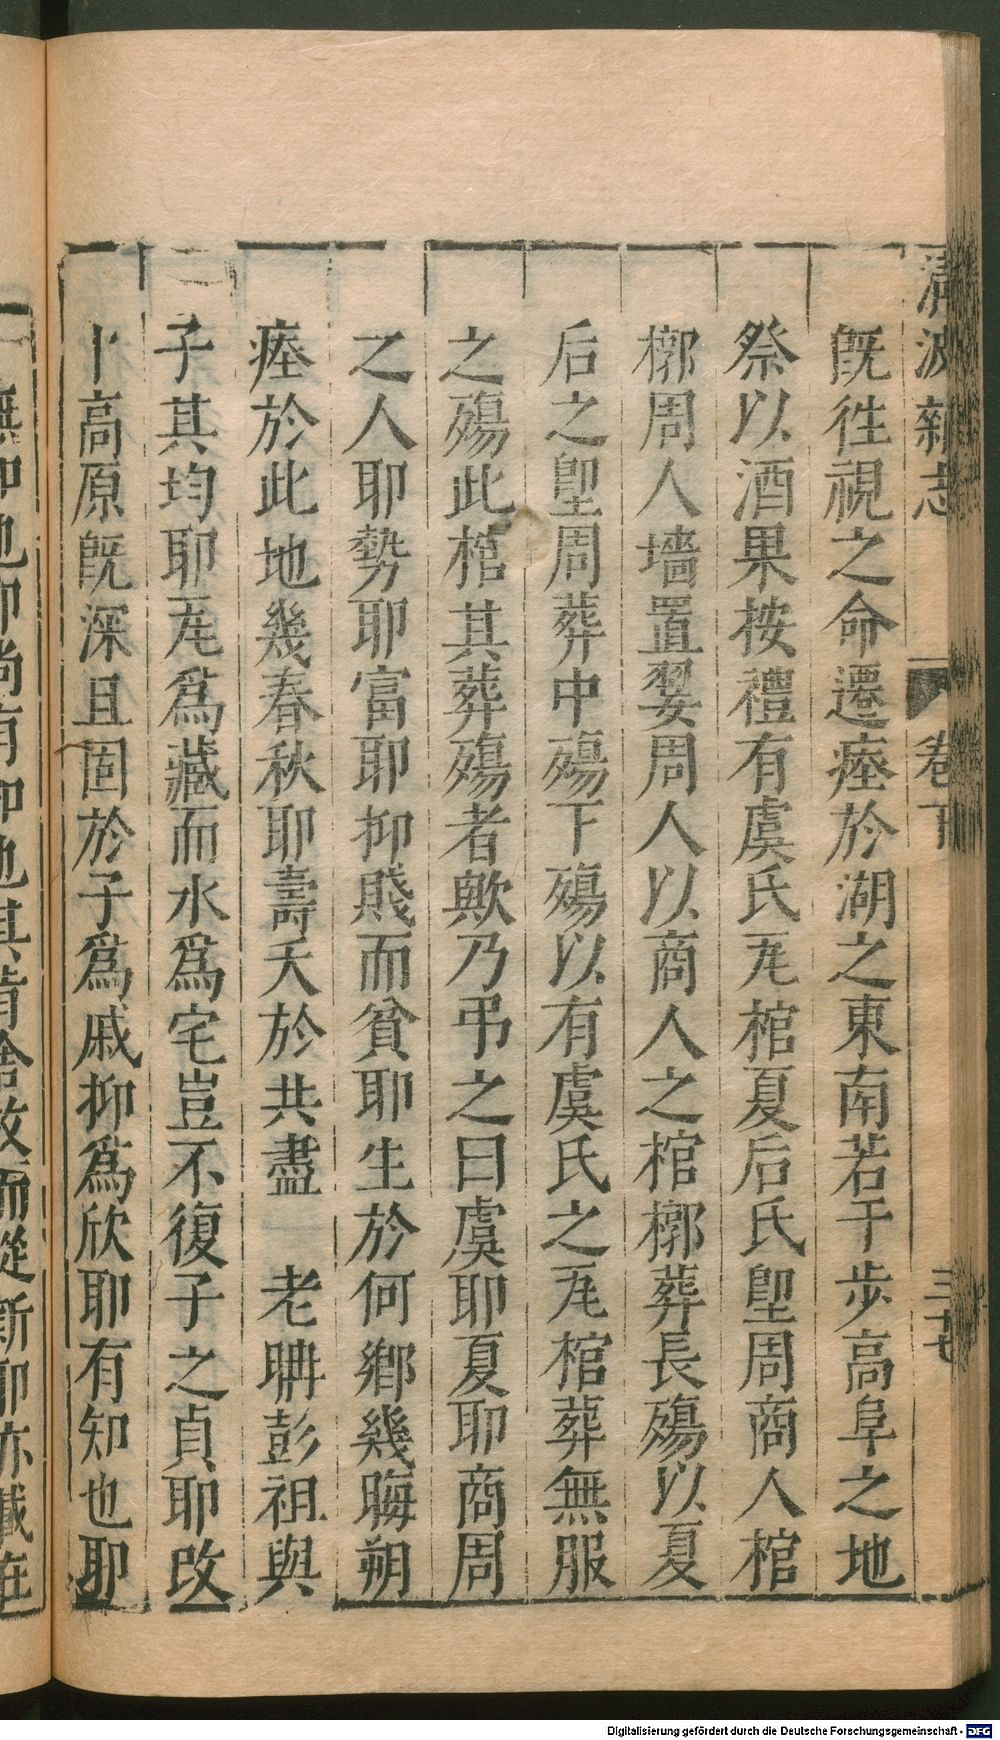 清波雜志 卷下 三十七
旣徃視之命遷瘞於湖之東南若干步高阜之地
祭以酒果按禮有虞氏瓦棺夏后氏堲周商人棺
槨周人墻置翣周人以商人之棺槨葬長殤以夏
后之堲周葬中殤下殤以有虞氏之瓦棺葬無服
之殤此棺其葬殤者歟乃弔之曰虞耶夏耶商周
之人耶勢耶富耶抑賤而貧耶生於何鄉幾晦朔
瘞於此地幾春秋耶壽夭於共盡 老聃彭祖與
子其均耶瓦爲藏而水爲宅豈不復子之貞耶改
卜高原旣深且固於子爲戚抑爲欣耶有知也耶
無知也耶尚有知也其肯舍故而從新耶亦藏在
Digitalisierung gefördert durch die Deutsche Forschungsgemeinschaft - DFG